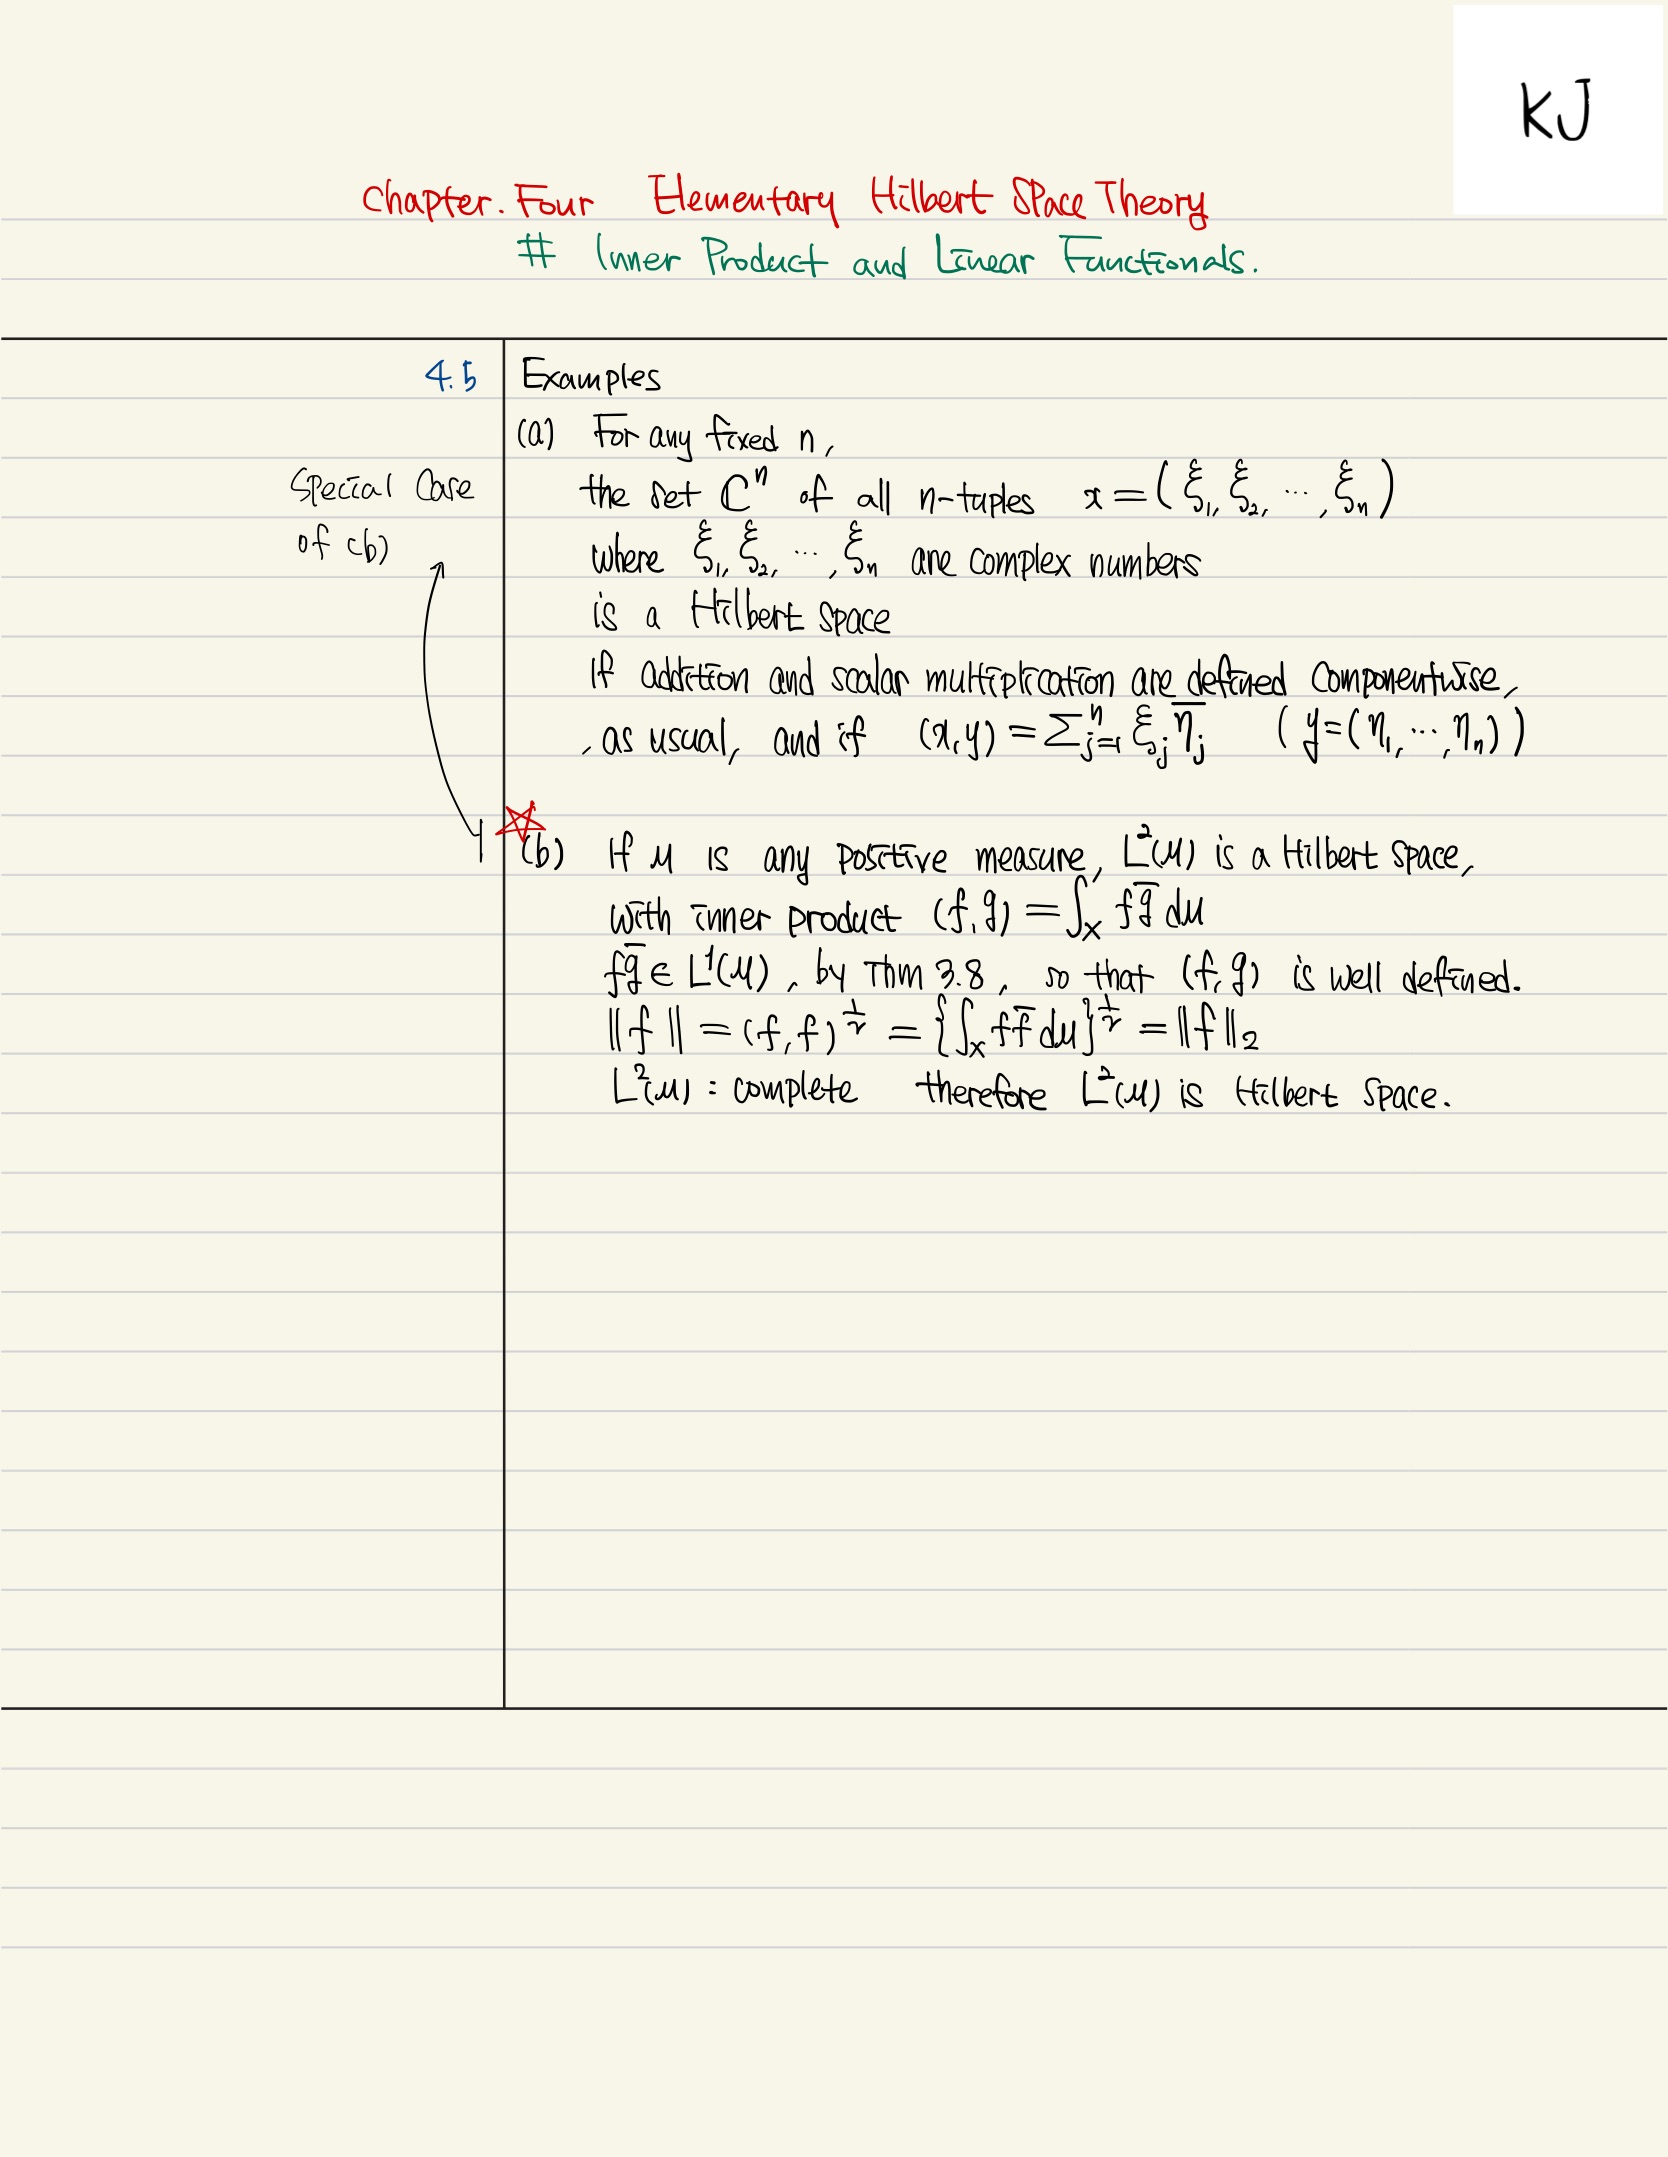 KJ
Chapter. Four Elementary Hilbert Space Theory
# Inner Product and Linear Functionals.
4.5 Examples
(a) For any fixed n,
Special Case
of (b)
the set ℂⁿ of all n-tuples x = (ξ₁, ξ₂, ⋯, ξₙ)
where ξ₁, ξ₂, ⋯, ξₙ are complex numbers
is a Hilbert space
If addition and scalar multiplication are defined componentwise,
, as usual, and if (x, y) = Σⁿⱼ₌₁ ξⱼ η̅ⱼ ( y = (η₁, ⋯, ηₙ) )
(b) If μ is any positive measure, L²(μ) is a Hilbert space,
with inner product (f, g) = ∫ₓ f g̅ dμ
f g̅ ∈ L¹(μ), by Thm 3.8, so that (f, g) is well defined.
‖f‖ = (f, f)^½ = {∫ₓ f f̅ dμ}^½ = ‖f‖₂
L²(μ) : complete therefore L²(μ) is Hilbert space.